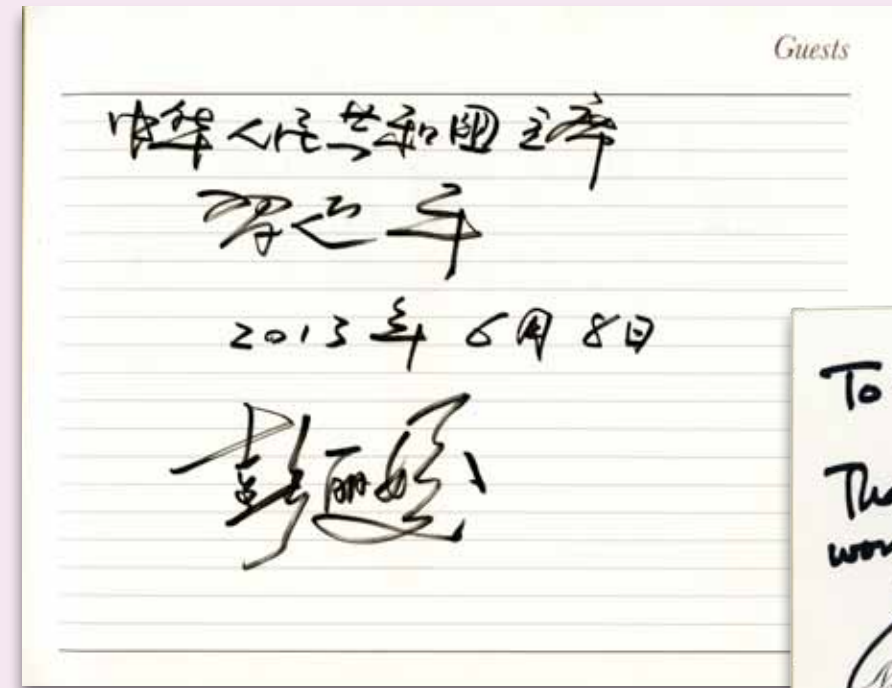 Guests
中华人民共和国主席
习近平
2013年6月8日
彭丽媛
To
Tha
wor